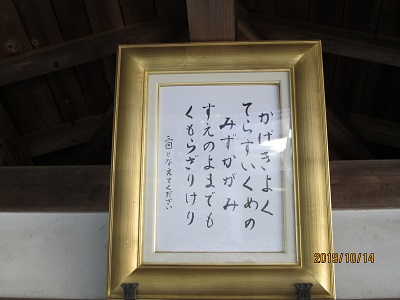 かげきよく
てらすいくめの
みずかがみ
すえのよまでも
くもらざりけり
三回となえてください
2019/10/14